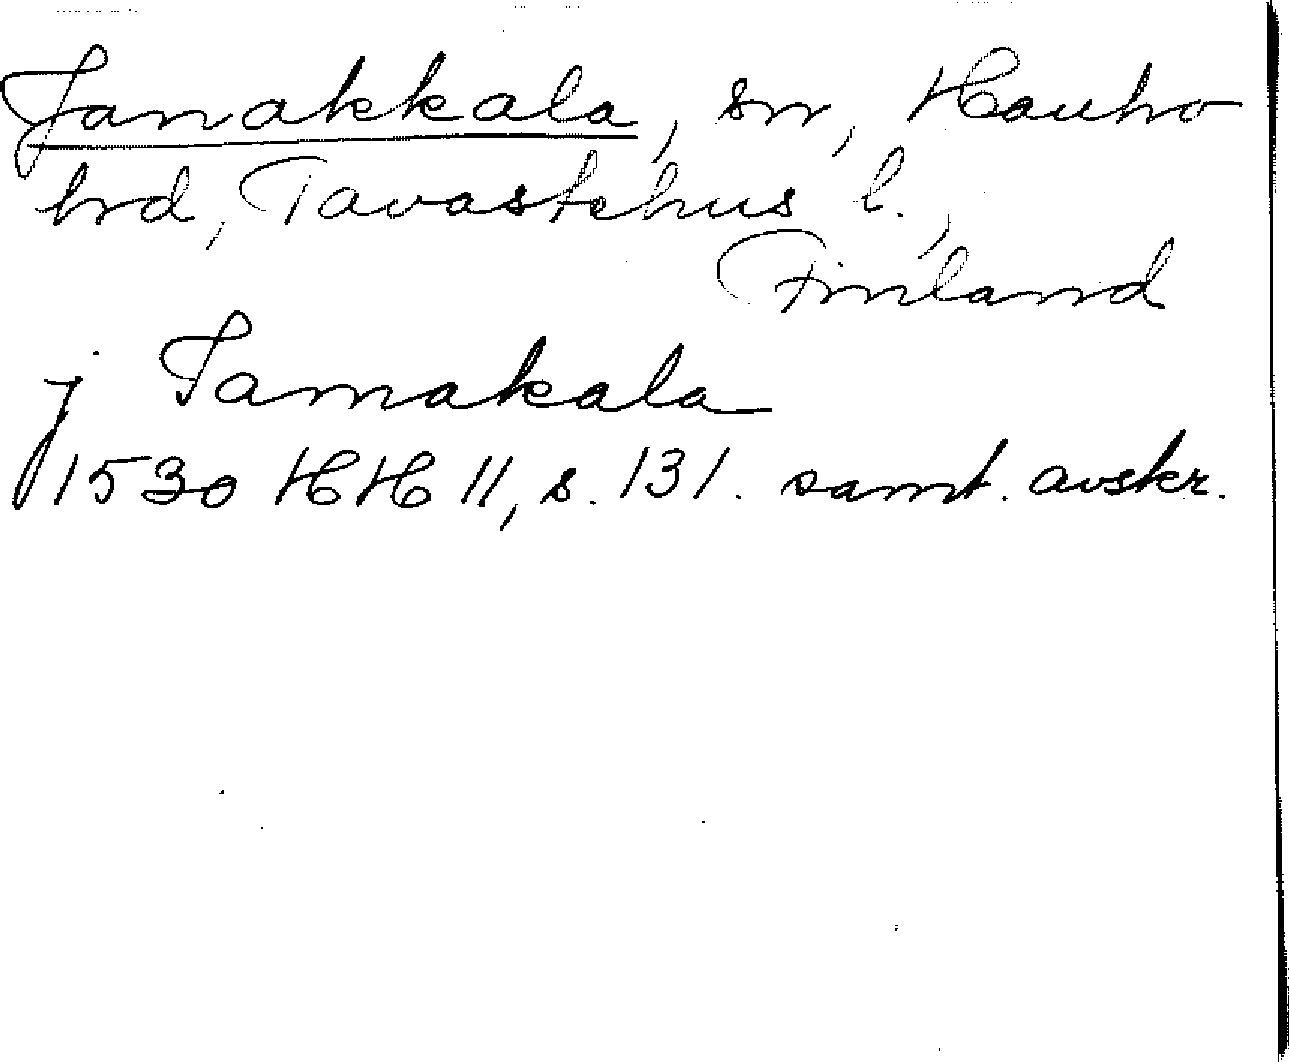 Janakkala, sn, Hauho
hrd, Tavastehus l.,
Finland
j Iamakala
1530 HH 11, s. 131. samt. avskr.